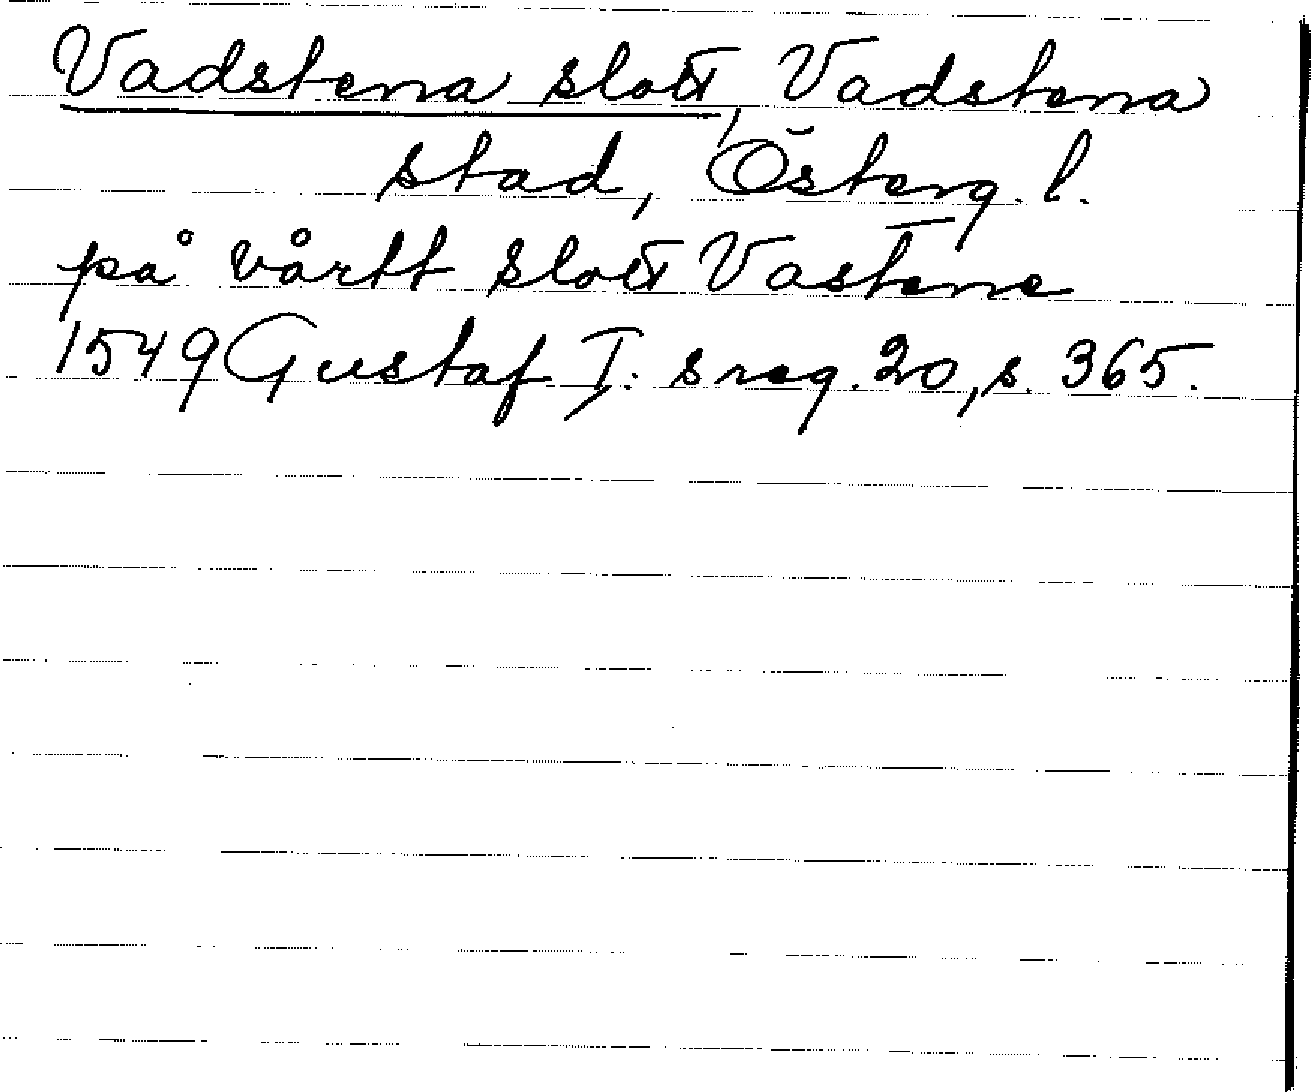 Vadstena slott, Vadstena
stad, Österg. l.
på vårtt slott Vastene
1549 Gustaf I:s reg. 20, s. 365.